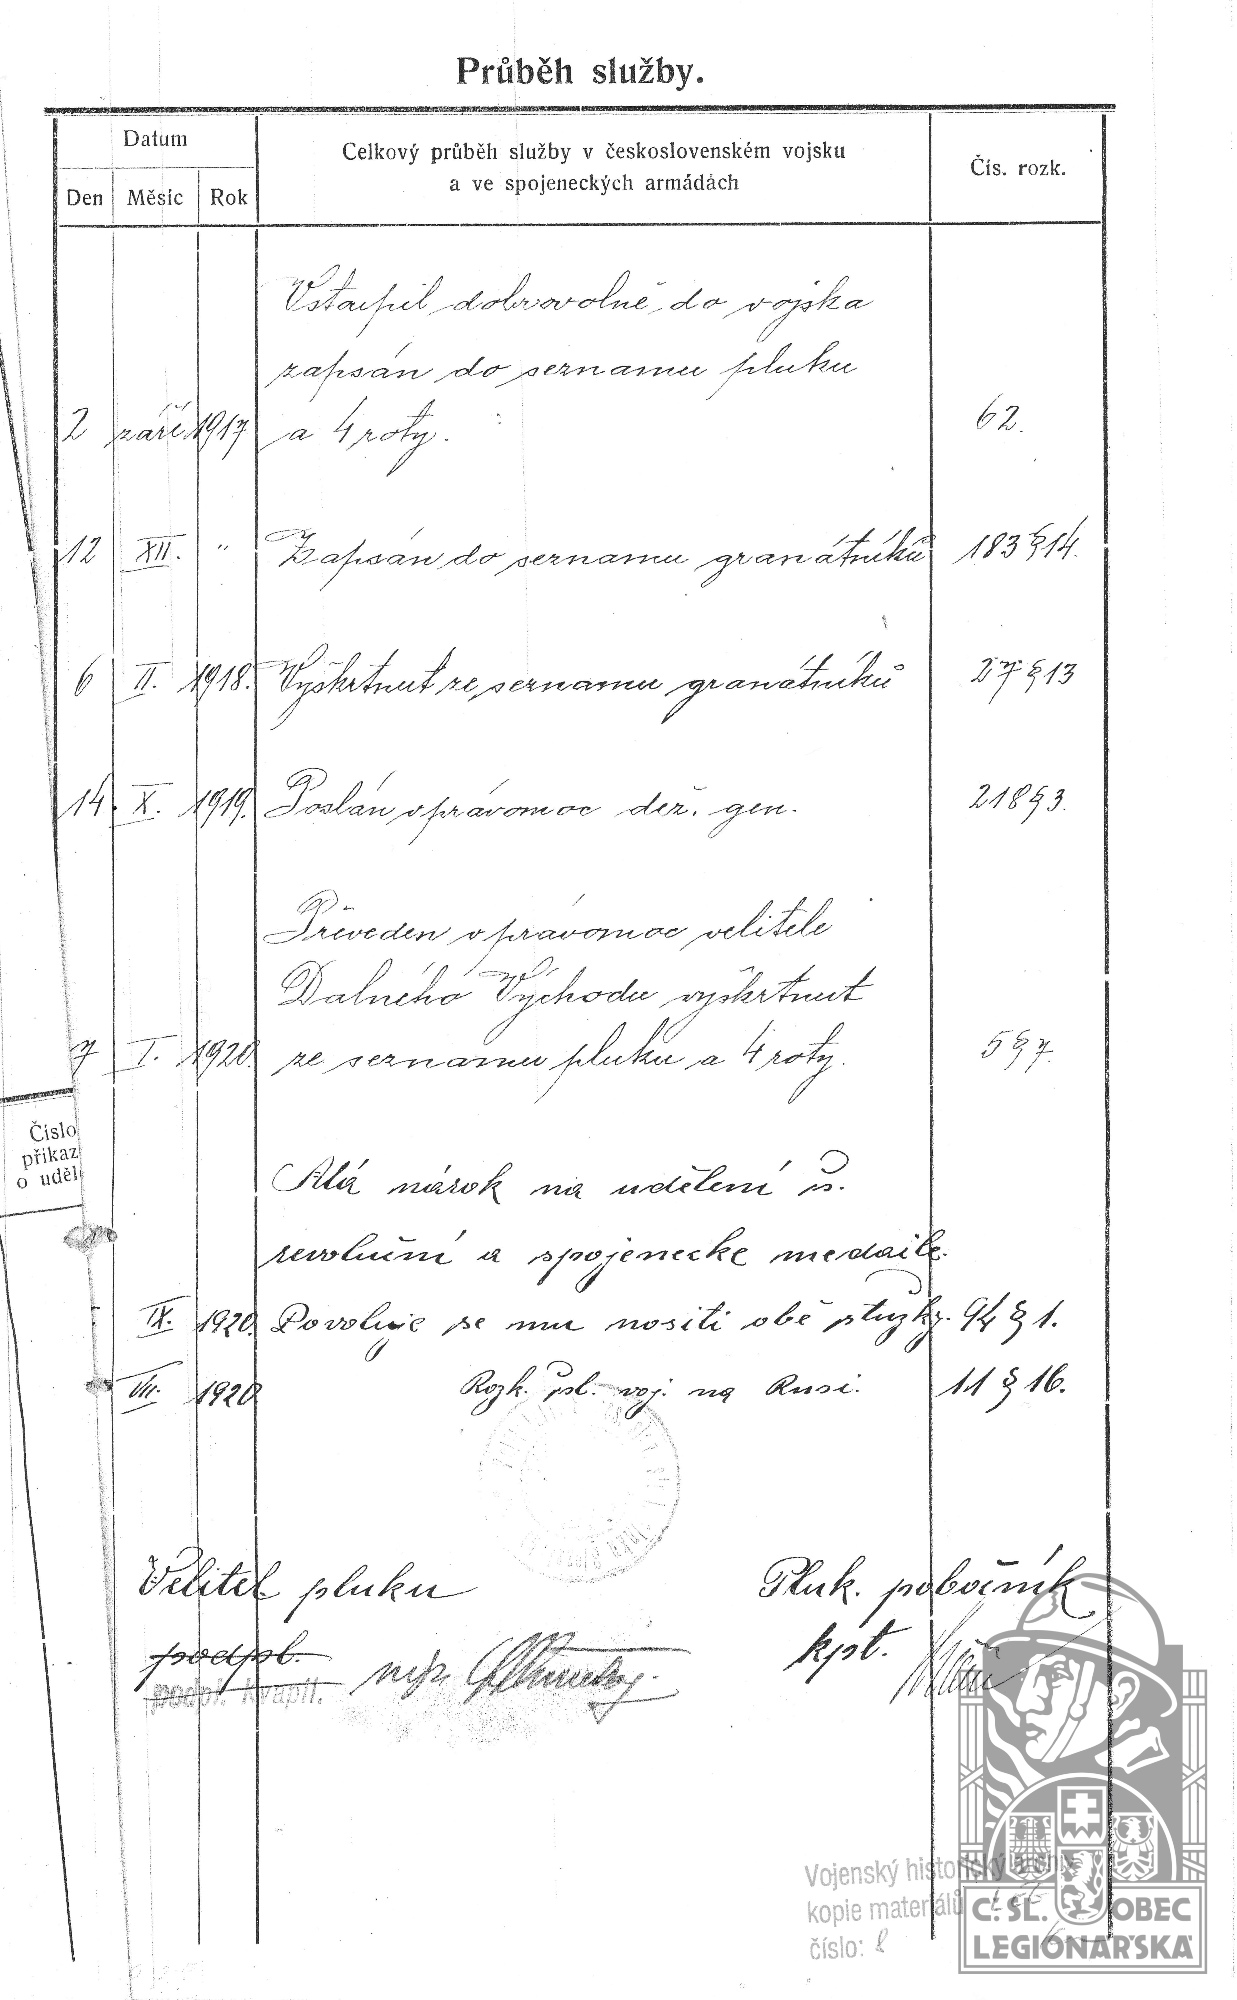 Průběh služby.
Datum
Den Měsíc Rok
Celkový průběh služby v československém vojsku
a ve spojeneckých armádách
Čís. rozk.
Vstoupil dobrovolně do vojska
zapsán do seznamu pluku
2 září 1917 a 4 roty. 62.
12 XII. " Zapsán do seznamu granátníků 183 § 14.
6 II. 1918. Vyškrtnut ze seznamu granátníků 27 § 13
14. X. 1919. Poslán v právomoc dež. gen. 218 § 3.
Převeden v právomoc velitele
Dalného Východu vyškrtnut
7 I. 1920. ze seznamu pluku a 4 roty. 5 § 7.
Číslo
příkaz
o uděl
Má nárok na udělení
revoluční a spojenecke medaile.
IX. 1920. Povoluje se mu nositi obě stužky. 94 § 1.
VII. 1920 Rozk. čsl. voj. na Rusi. 11 § 16.
Velitel pluku Pluk. pobočník
podpl. kpt.
podpl. Kvapil.
Vojenský historický archiv
kopie materiálů
číslo:
Č. SL. OBEC
LEGIONÁŘSKÁ